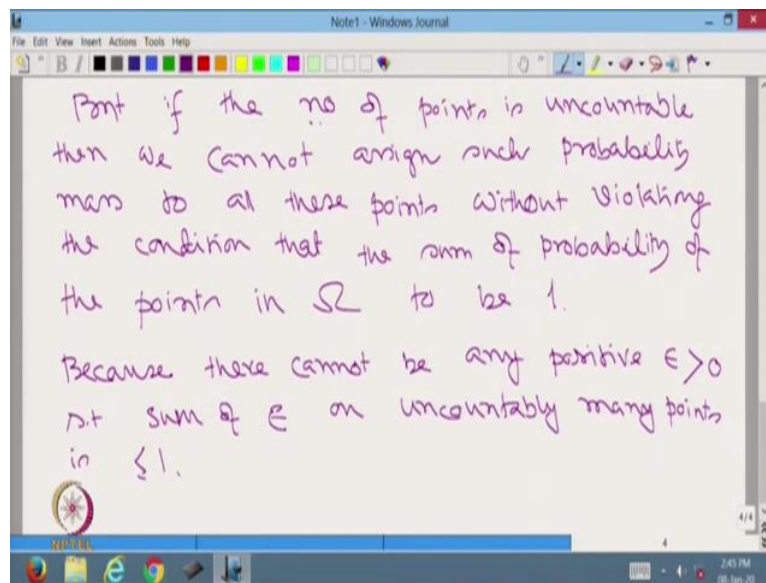 Note1 - Windows Journal
File Edit View Insert Actions Tools Help
But if the no of points is uncountable
then we cannot assign such probability
mass to all these points without violating
the condition that the sum of probability of
the points in Ω to be 1.
Because there cannot be any positive ϵ > 0
s.t sum of ϵ on uncountably many points
is ≤ 1.
NPTEL
4/4
4
2:45 PM
08-Jan-20